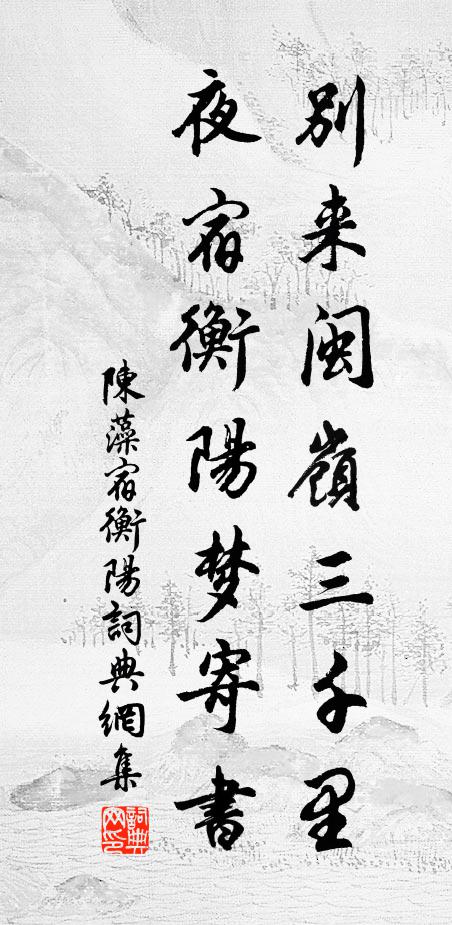 别来闽嶺三千里
夜宿衡陽梦寄書
陳藻宿衡陽詞典網集
詞典
网印